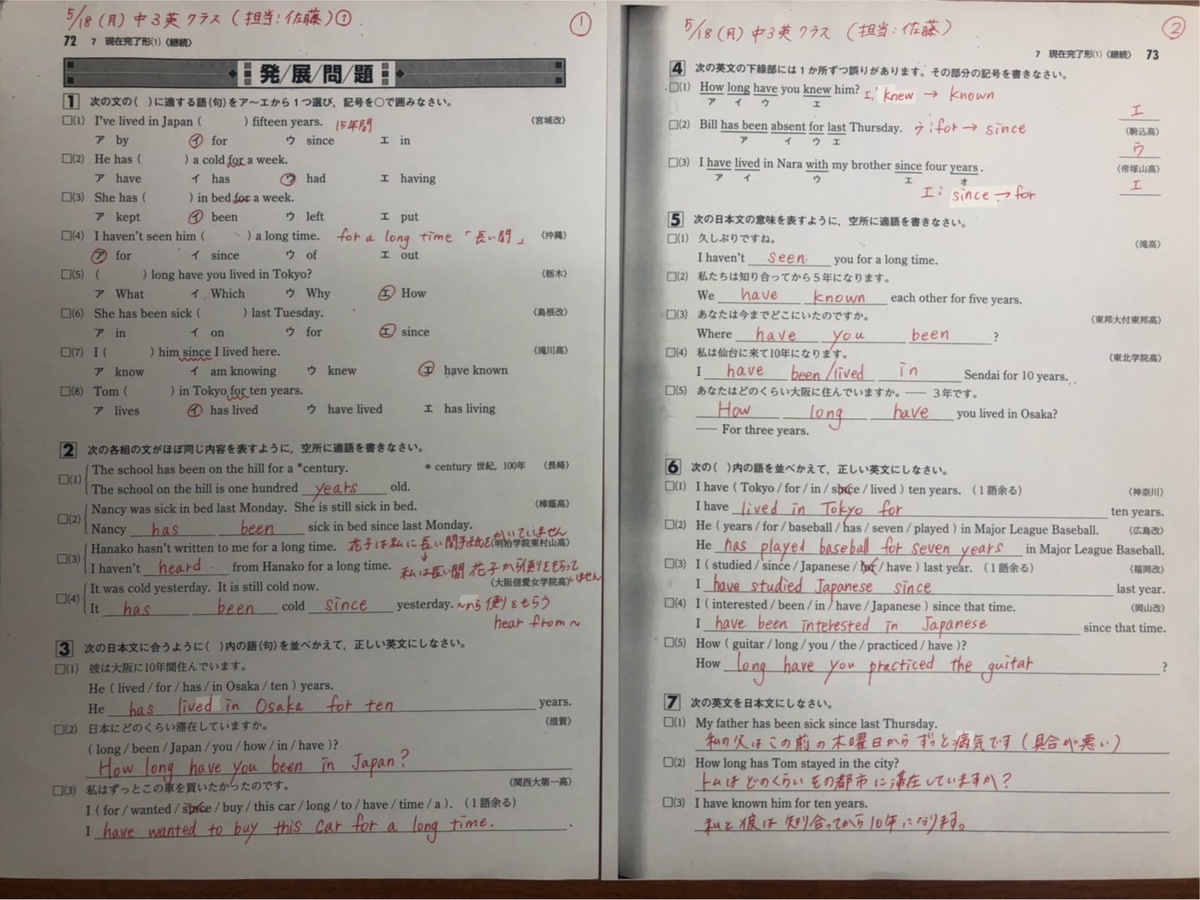 5/18 (月) 中3英クラス (担当:佐藤)①
①
72 7 現在完了形(1)〈継続〉
発/展/問/題
1 次の文の( )に適する語(句)をア〜エから1つ選び,記号を○で囲みなさい。
□(1) I've lived in Japan ( ) fifteen years. 15年間 〈宮城改〉
ア by イ for ウ since エ in
□(2) He has ( ) a cold for a week.
ア have イ has ウ had エ having
□(3) She has ( ) in bed for a week.
ア kept イ been ウ left エ put
□(4) I haven't seen him ( ) a long time. for a long time 「長い間」 〈沖縄〉
ア for イ since ウ of エ out
□(5) ( ) long have you lived in Tokyo? 〈栃木〉
ア What イ Which ウ Why エ How
□(6) She has been sick ( ) last Tuesday. 〈島根改〉
ア in イ on ウ for エ since
□(7) I ( ) him since I lived here. 〈滝川高〉
ア know イ am knowing ウ knew エ have known
□(8) Tom ( ) in Tokyo for ten years.
ア lives イ has lived ウ have lived エ has living
2 次の各組の文がほぼ同じ内容を表すように,空所に適語を書きなさい。
□(1) The school has been on the hill for a *century. * century 世紀,100年 〈長崎〉
The school on the hill is one hundred years old.
□(2) Nancy was sick in bed last Monday. She is still sick in bed. 〈樟蔭高〉
Nancy has been sick in bed since last Monday.
□(3) Hanako hasn't written to me for a long time. 花子は私に長い間手紙をかいていません 〈明治学院東村山高〉
I haven't heard from Hanako for a long time. 私は長い間花子から便りをもらっていません
□(4) It was cold yesterday. It is still cold now. 〈大阪信愛女学院高〉
It has been cold since yesterday. 〜から便りをもらう
hear from 〜
3 次の日本文に合うように( )内の語(句)を並べかえて,正しい英文にしなさい。
□(1) 彼は大阪に10年間住んでいます。
He ( lived / for / has / in Osaka / ten ) years.
He has lived in Osaka for ten years.
□(2) 日本にどのくらい滞在していますか。 〈滋賀〉
( long / been / Japan / you / how / in / have )?
How long have you been in Japan?
□(3) 私はずっとこの車を買いたかったのです。 〈関西大第一高〉
I ( for / wanted / since / buy / this car / long / to / have / time / a ). (1語余る)
I have wanted to buy this car for a long time.
5/18 (月) 中3英クラス (担当:佐藤)
②
7 現在完了形(1)〈継続〉 73
4 次の英文の下線部には1か所ずつ誤りがあります。その部分の記号を書きなさい。
□(1) How long have you knew him? エ: knew → known
ア イ ウ エ
エ
□(2) Bill has been absent for last Thursday. ウ:for → since 〈駒込高〉
ア イ ウ エ
ウ
□(3) I have lived in Nara with my brother since four years. 〈帝塚山高〉
ア イ ウ エ オ
エ
エ: since → for
5 次の日本文の意味を表すように,空所に適語を書きなさい。
□(1) 久しぶりですね。 〈滝高〉
I haven't seen you for a long time.
□(2) 私たちは知り合ってから5年になります。
We have known each other for five years.
□(3) あなたは今までどこにいたのですか。 〈東邦大付東邦高〉
Where have you been ?
□(4) 私は仙台に来て10年になります。 〈東北学院高〉
I have been/lived in Sendai for 10 years.
□(5) あなたはどのくらい大阪に住んでいますか。—— 3年です。
How long have you lived in Osaka?
—— For three years.
6 次の( )内の語を並べかえて,正しい英文にしなさい。
□(1) I have ( Tokyo / for / in / since / lived ) ten years. (1語余る) 〈神奈川〉
I have lived in Tokyo for ten years.
□(2) He ( years / for / baseball / has / seven / played ) in Major League Baseball. 〈広島改〉
He has played baseball for seven years in Major League Baseball.
□(3) I ( studied / since / Japanese / for / have ) last year. (1語余る) 〈福岡改〉
I have studied Japanese since last year.
□(4) I ( interested / been / in / have / Japanese ) since that time. 〈岡山改〉
I have been interested in Japanese since that time.
□(5) How ( guitar / long / you / the / practiced / have )?
How long have you practiced the guitar ?
7 次の英文を日本文にしなさい。
□(1) My father has been sick since last Thursday.
私の父はこの前の木曜日からずっと病気です(具合が悪い)
□(2) How long has Tom stayed in the city?
トムはどのくらいその都市に滞在していますか?
□(3) I have known him for ten years.
私と彼は知り合ってから10年になります。